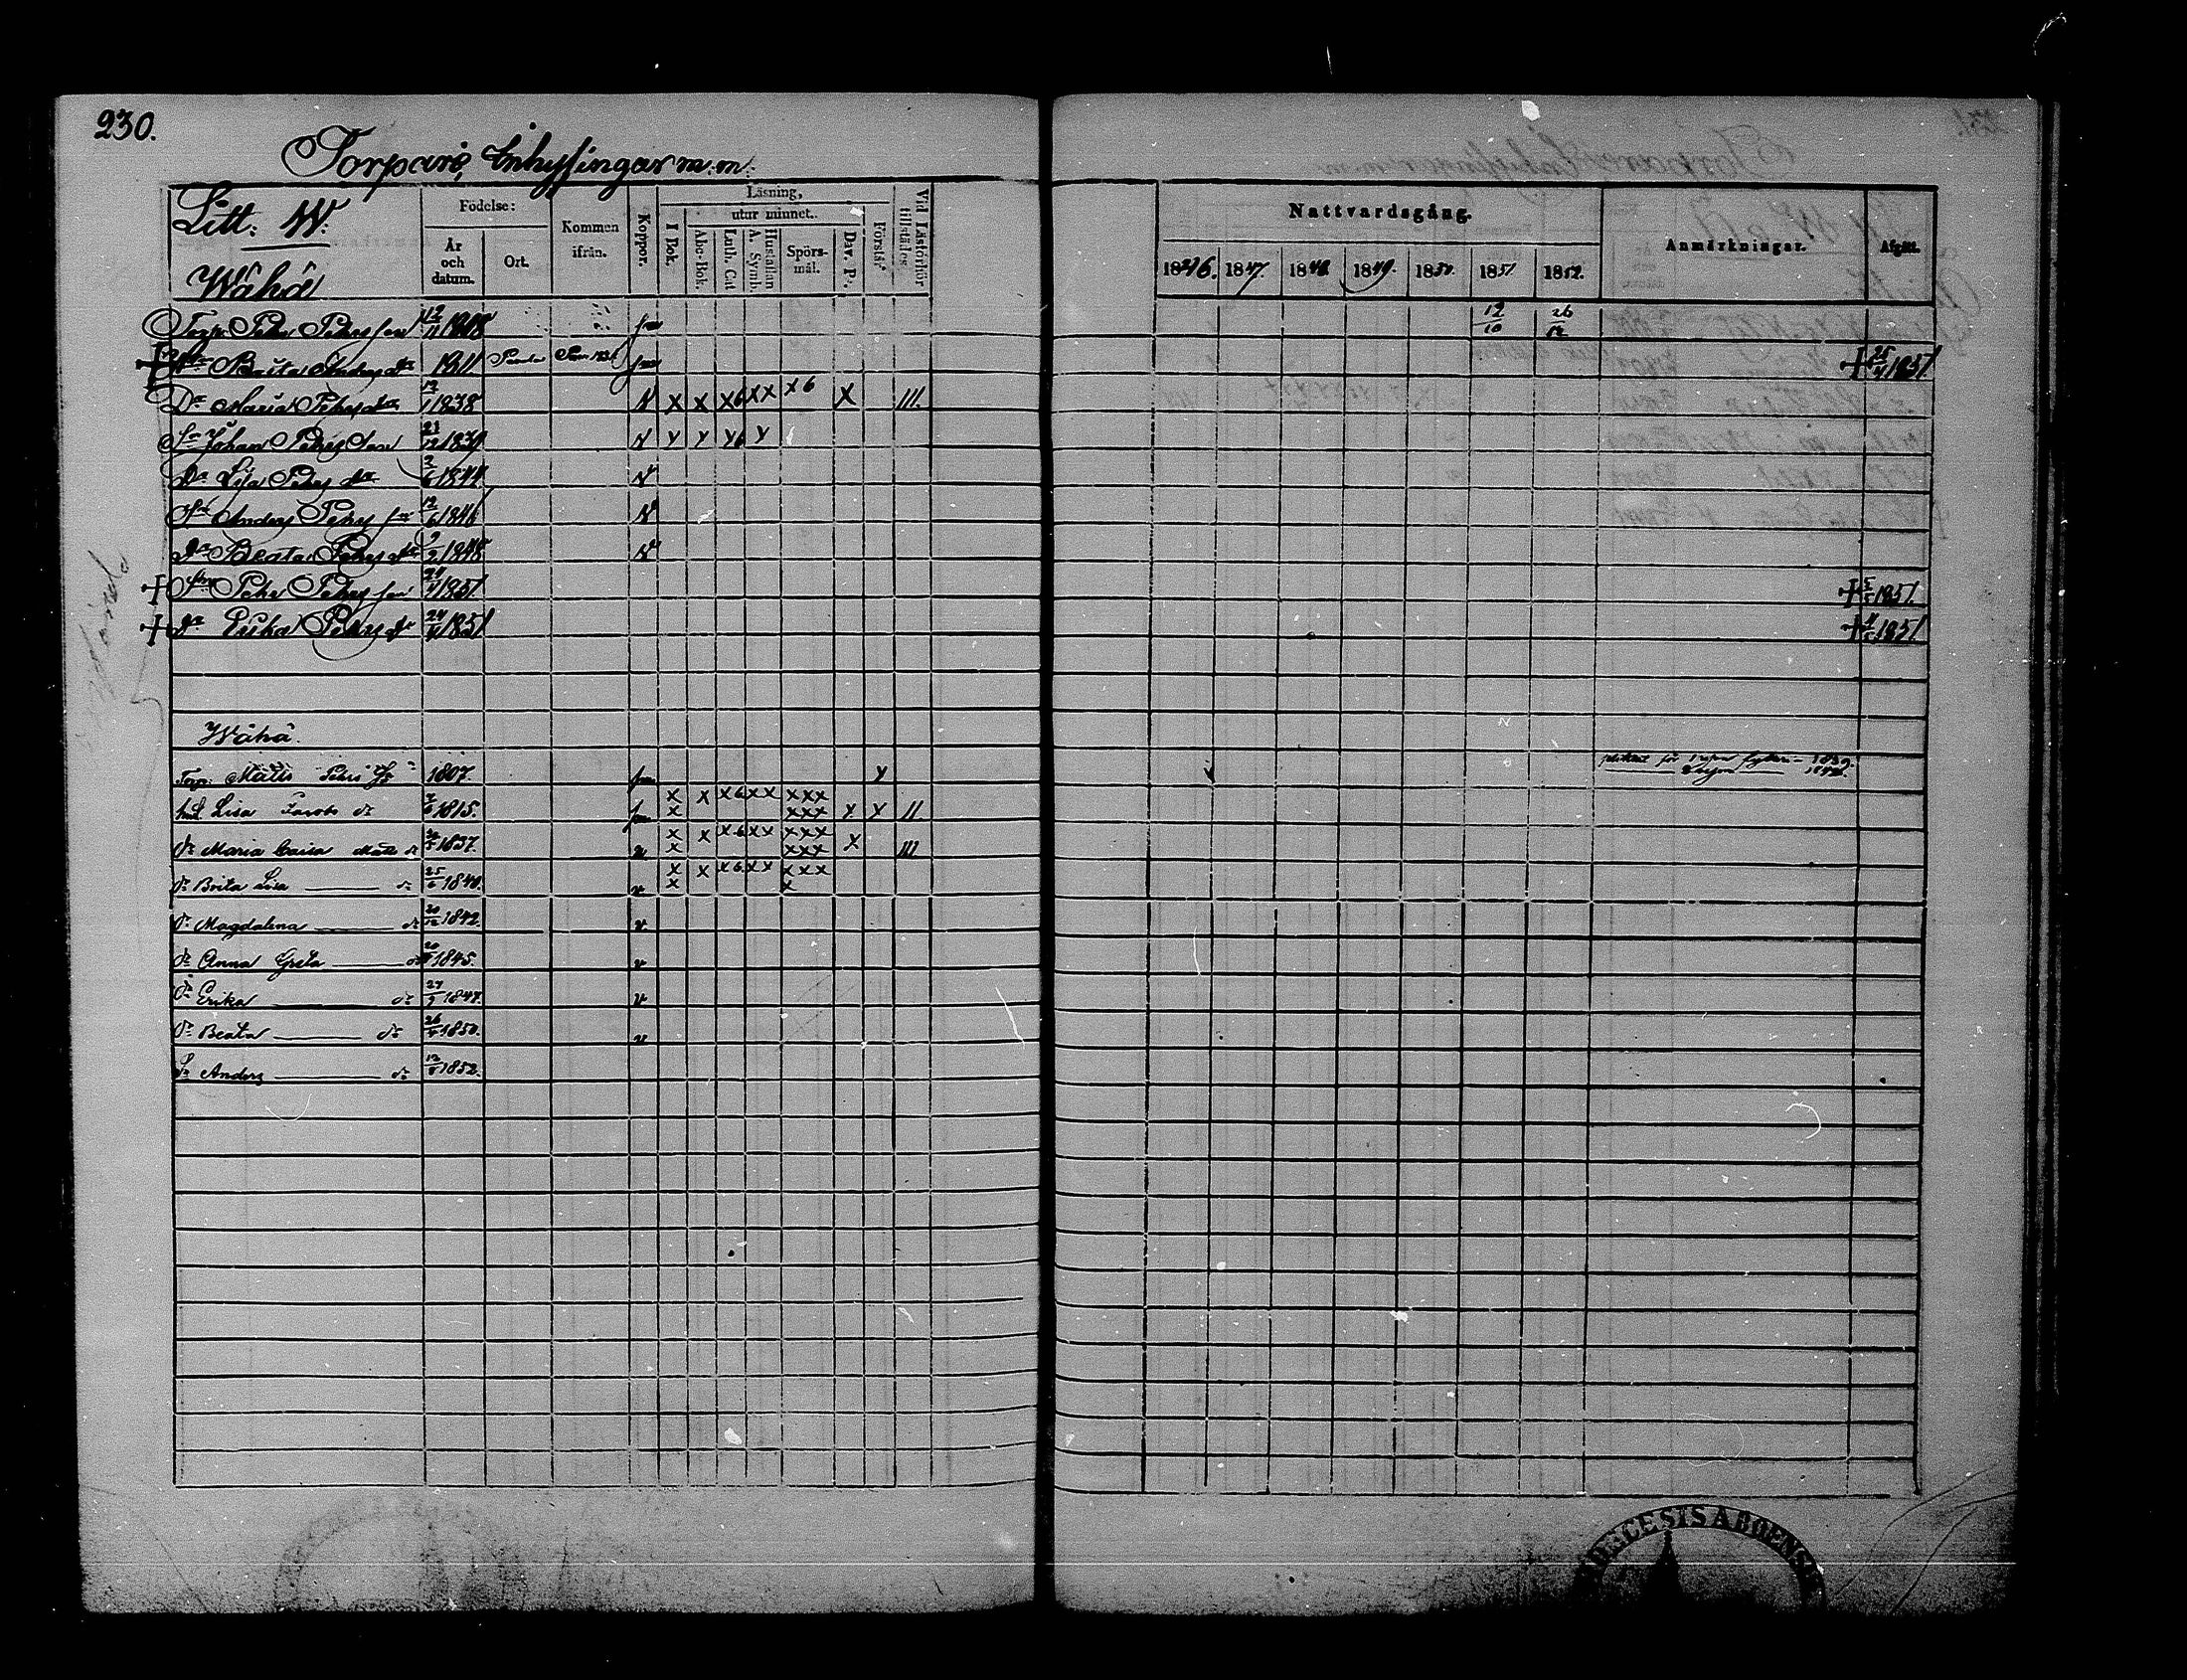 230.
Torpare, Inhysingar m.m.
Litt. W.
Wähä
Födelse:
År och datum.
Ort.
Kommen ifrån.
Koppor.
Läsning,
utur minnet.
I Bok.
Abc-Bok.
Luth. Cat
Hustaflan A. Symb.
Spörsmål.
Dav. Ps.
Förstår
Vid Läsförhör tillstädes
Nattvardsgång.
1846. 1847. 1848. 1849. 1850. 1851 1852.
Anmärkningar.
Afgått.
Torp. Pehr Pehrsson 12/10 26/12
Brita Andersdr 1811 + 25/4 1851
Dr Maria Pehrsdr 1838 N X X X6 XX X6 X III.
Sn Johan Pehrsson 21/12 1839 N Y Y Y6 Y
Dr Lisa Pehrsdr 1844 N
Sn Anders Pehrsson 12/6 1846 N
Dr Beata Pehrsdr 1848 N
+ Sn Pehr Pehrsson 24/4 1851 + 5/5 1851.
+ Dr Erika Pehrsdr 24/4 1851 + 1851
Wähä.
Torp. Matts Pehrs 1807 Y
Lisa Jacobs dr 1815. X X X6 XX XXX X XXX X X II
dr Maria Caisa Matts dr 1837. v X X X6 XX XXX X XXX X III
dr Brita Lisa dr 25/6 1840. v X X X6 XX XXX X X
dr Magdalena dr 20/12 1842. v
dr Anna Greta dr 1845. v
dr Erika dr 27/9 1847. v
dr Beata dr 26/4 1850. v
Sn Anders dr 12/8 1852.
DIOECESIS ABOENSIS